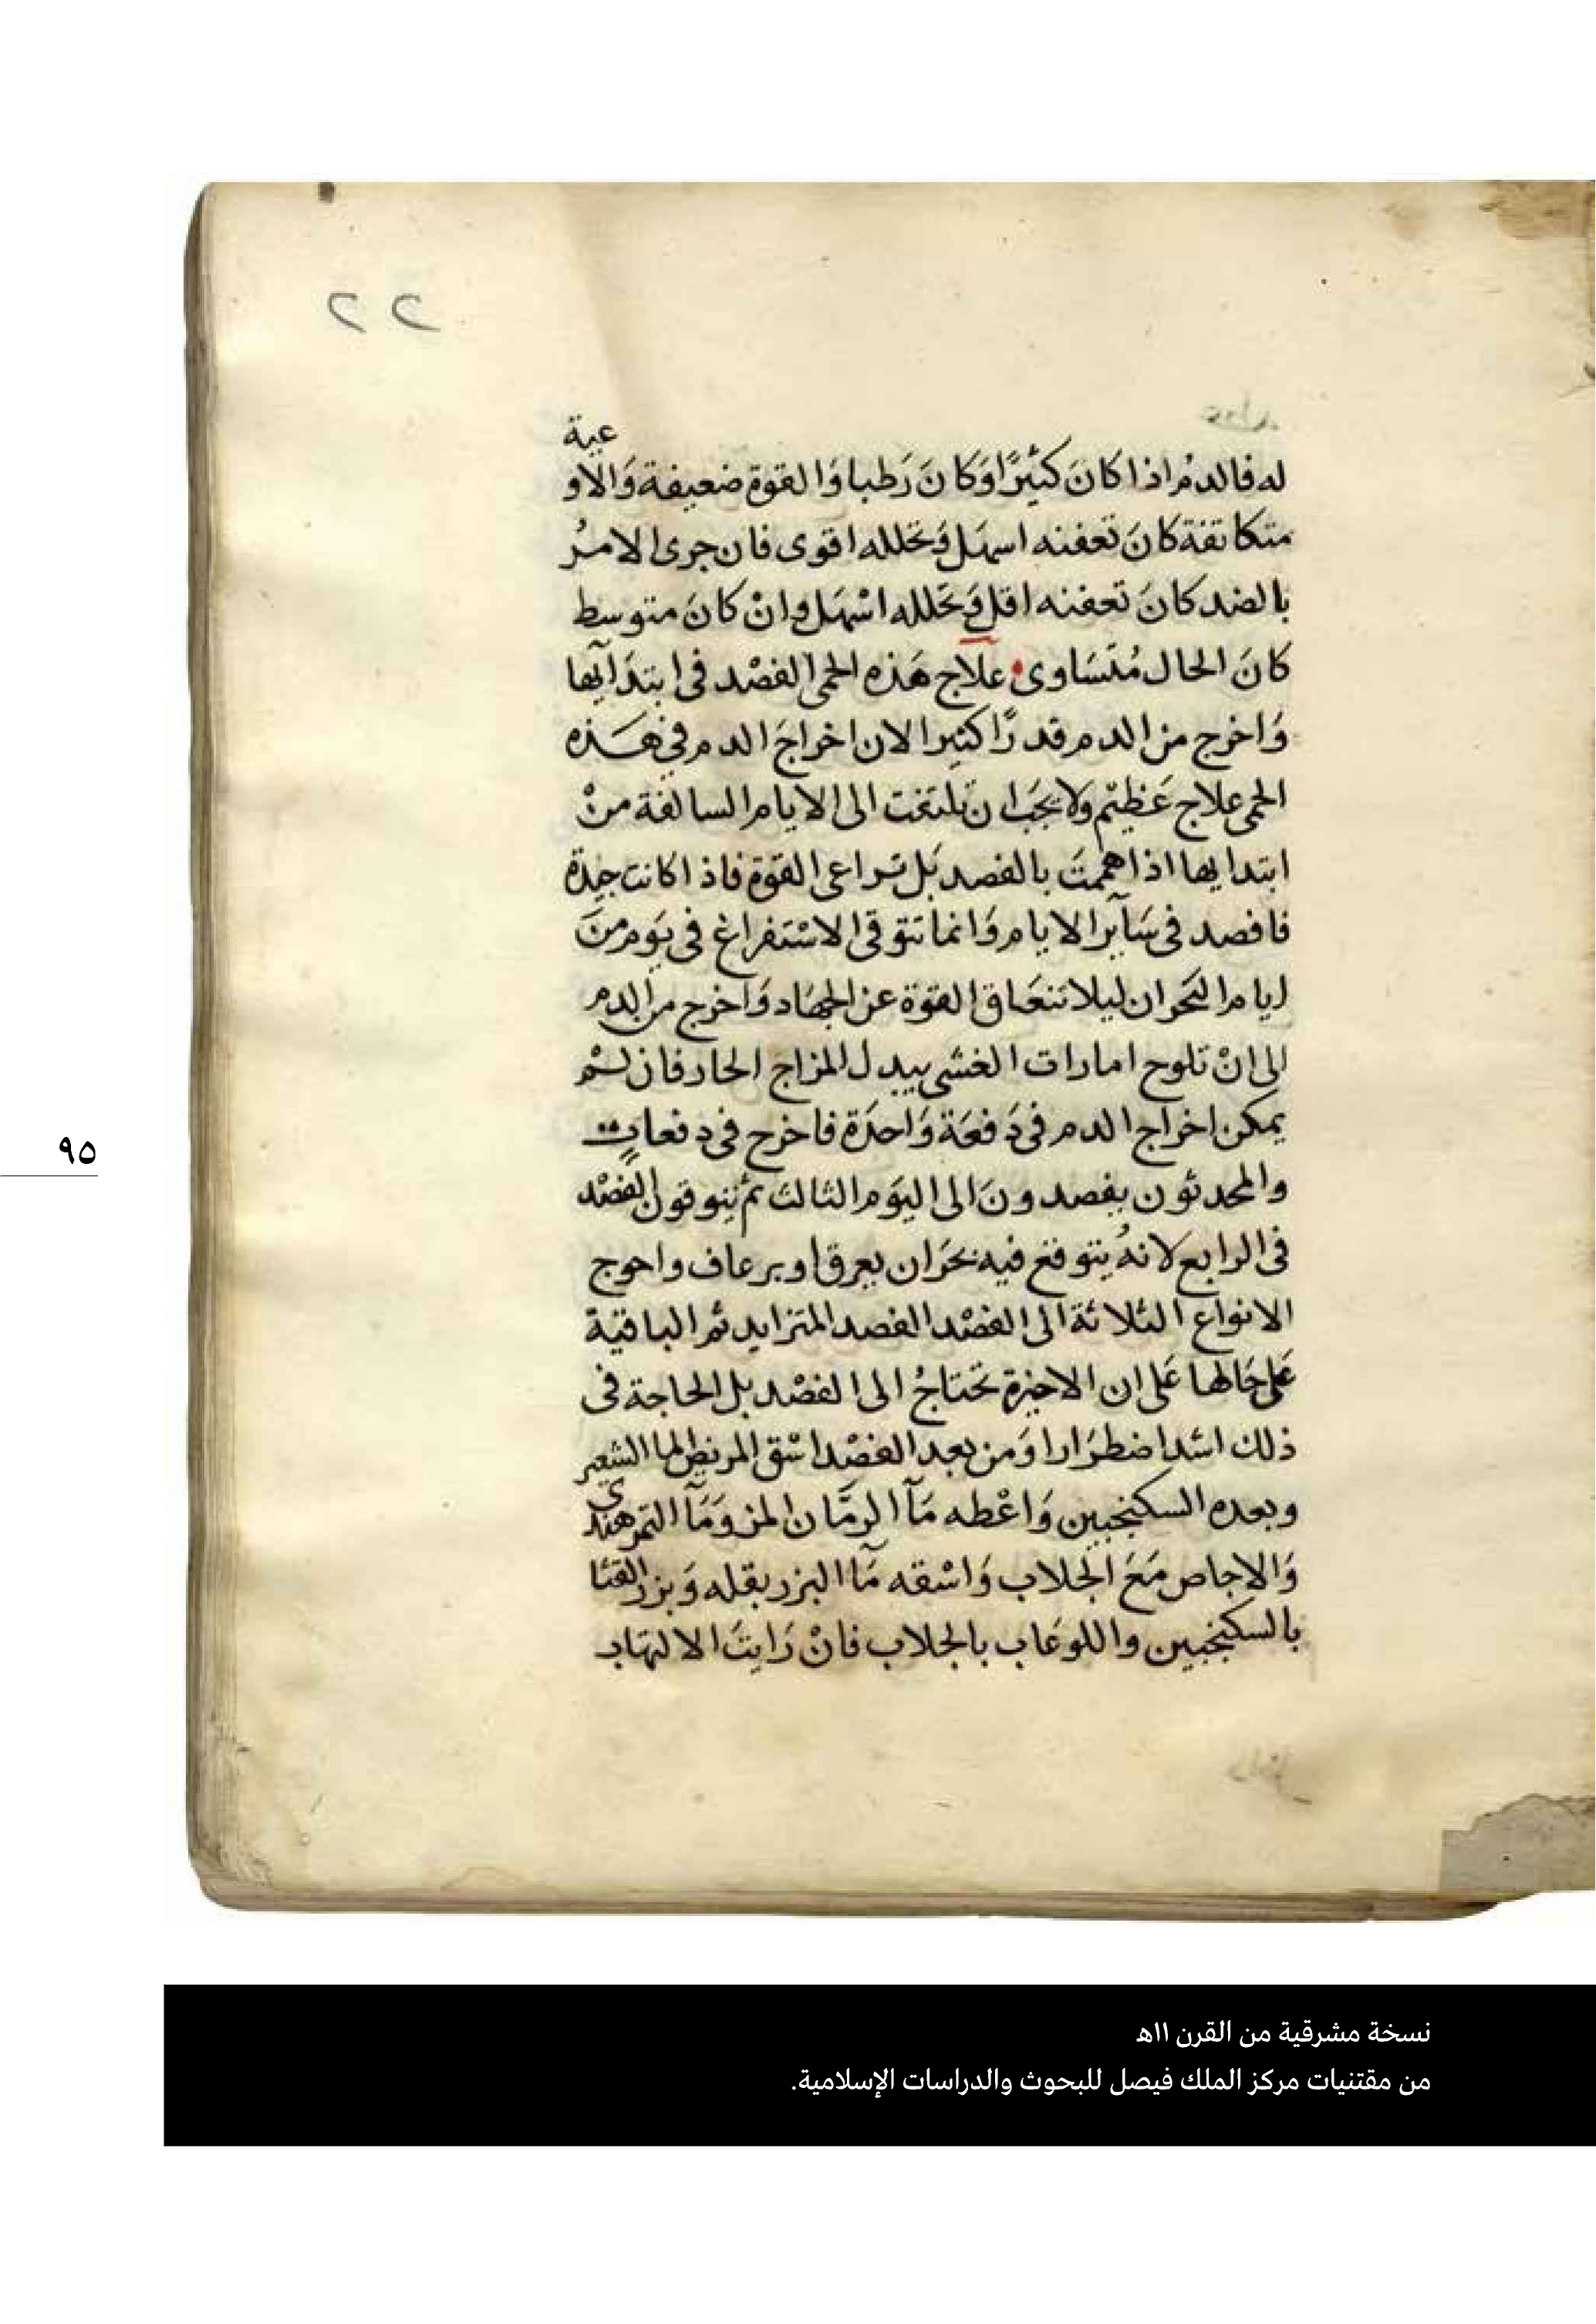 ٢٢
له فالدمُ اذا كانَ كثيرًا وَكانَ رَطبا وَالقوة ضعيفة وَالاوعية
متكاثفة كانَ تعفنه اسهَل وَتحلله اقوى فان جرى الامرُ
بالضد كانَ تعفنه اقل وَتحَلله اسْهَل وانْ كانَ متوسط
كانَ الحال مُتَسَاوى علاج هَذه الحمى الفصْد فى ابتدَآيها
وَاخرج من الدم قدرًا كثيرا لان اخراجَ الدم في هَذه
الحمى علاج عَظيم ولا يجَب ان تلتفت الى الايام السالفة منْ
ابتدايها اذا هممتَ بالفصد بَل تراعى القوة فاذا كانت جيدة
فافصد فى سَآير الايام وَانما تتوقى الاسْتفراغ فى يَوم منَ
ايام البَحران ليلا تنعَاق القوة عن الجهَاد وَاخرج من الدم
الى انْ تلوح امارات الغشى بيدل المزاج الحار فان لمْ
يمكن اخراج الدم فى دَفعَة وَاحدَة فاخرج فى دفعاتٍ
والمحدثون يفصدونَ الى اليَوم الثالث ثم يتوقون الفصْد
فى الرابع لانهُ يتوقع فيه بحَران بعرق او برعاف واحوج
الانواع الثلاثة الى الفصْد الفصد المتزايد ثم الباقية
عَلى حَالها عَلى ان الاخيرة تحتَاجُ الى الفصْد بل الحاجة فى
ذلك اشد اضطرَارا وَمن بعد الفصْد اسْق المريض ما الشعير
وبعده السكنجبين وَاعْطه مَآ الرمَّان المز وَمَآ التمر هندي
وَالاجاص مَعَ الجلاب وَاسْقه مَآ البزر بقله وَبزر القثا
بالسكنجبين واللوعَاب بالجلاب فانْ رَايتَ الالتهاب
٩٥
نسخة مشرقية من القرن ١١هـ
من مقتنيات مركز الملك فيصل للبحوث والدراسات الإسلامية.